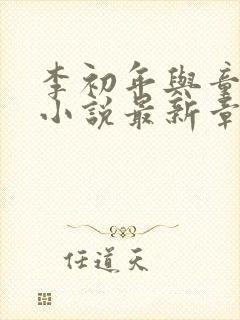 李初年與童
小說最新章
任道天